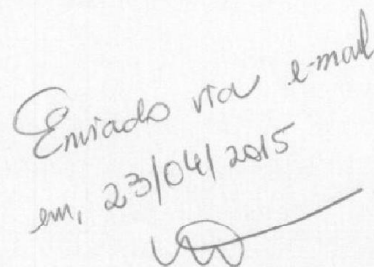 Enviado via e-mail
em, 23/04/2015